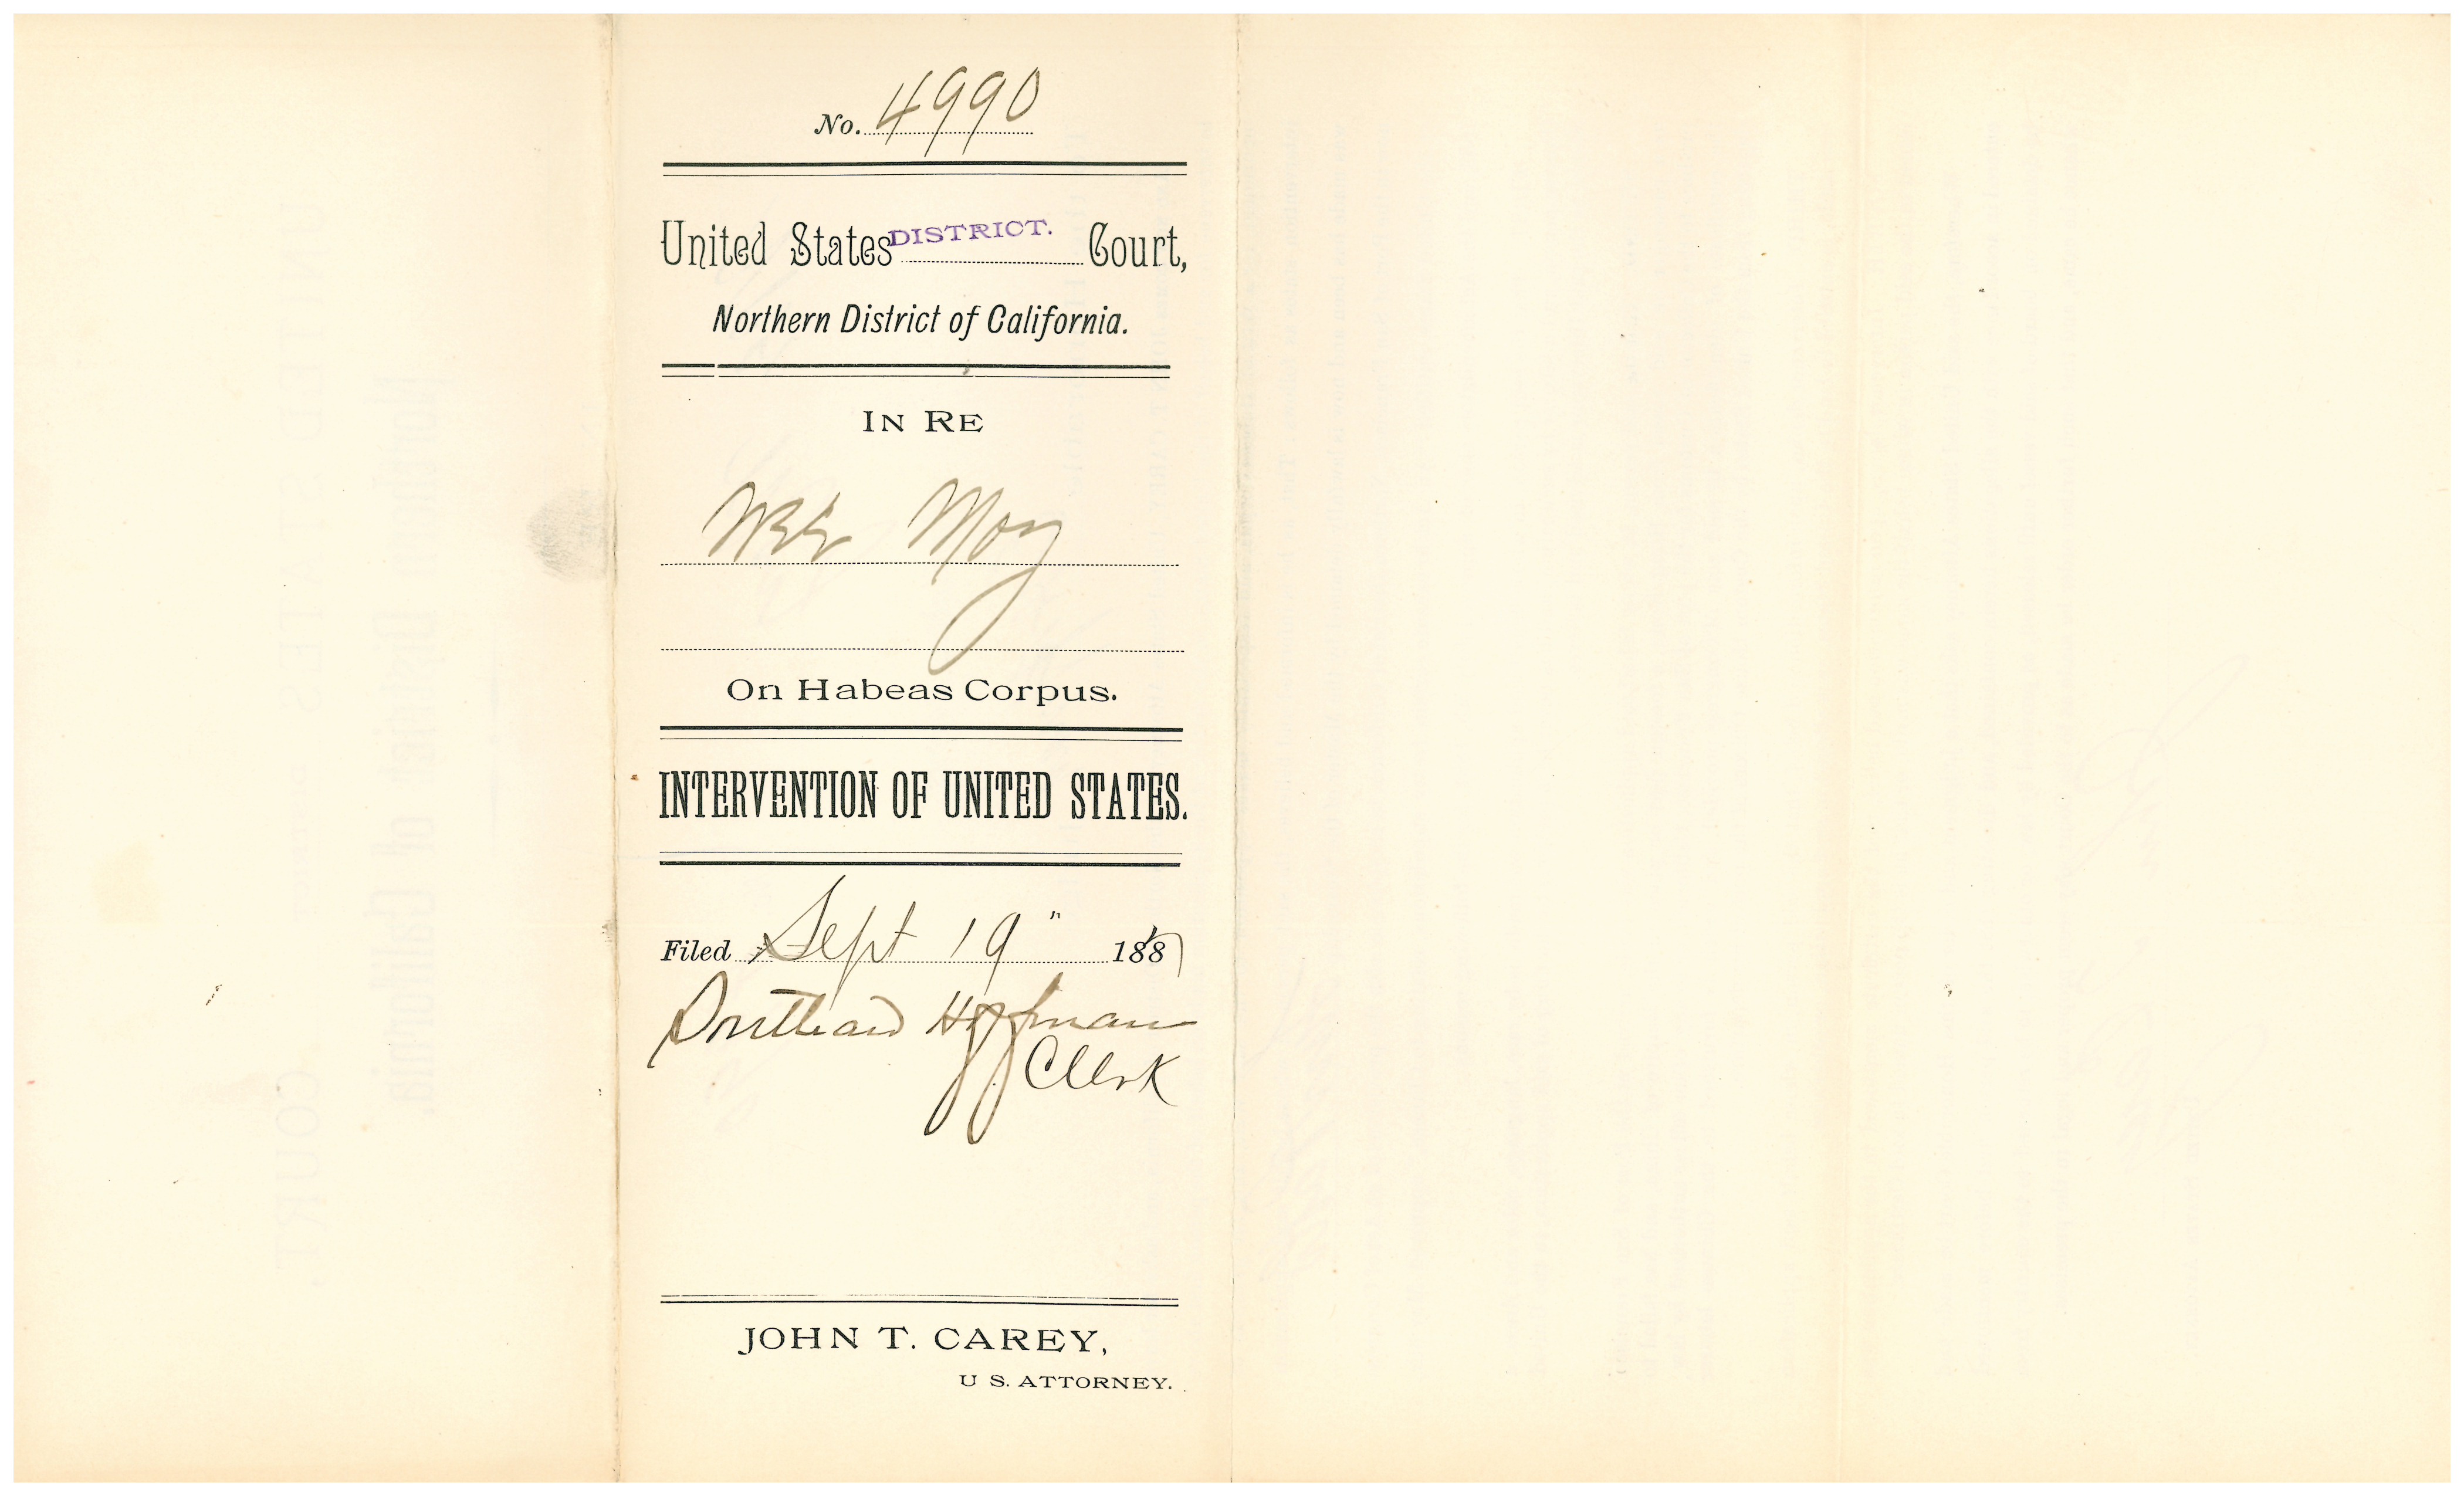 No. 4990
United States DISTRICT. Court,
Northern District of California.
IN RE
Moy
On Habeas Corpus.
INTERVENTION OF UNITED STATES.
Filed Sept 19" 1887
Southard Hoffman
Clerk
JOHN T. CAREY,
U S. ATTORNEY.